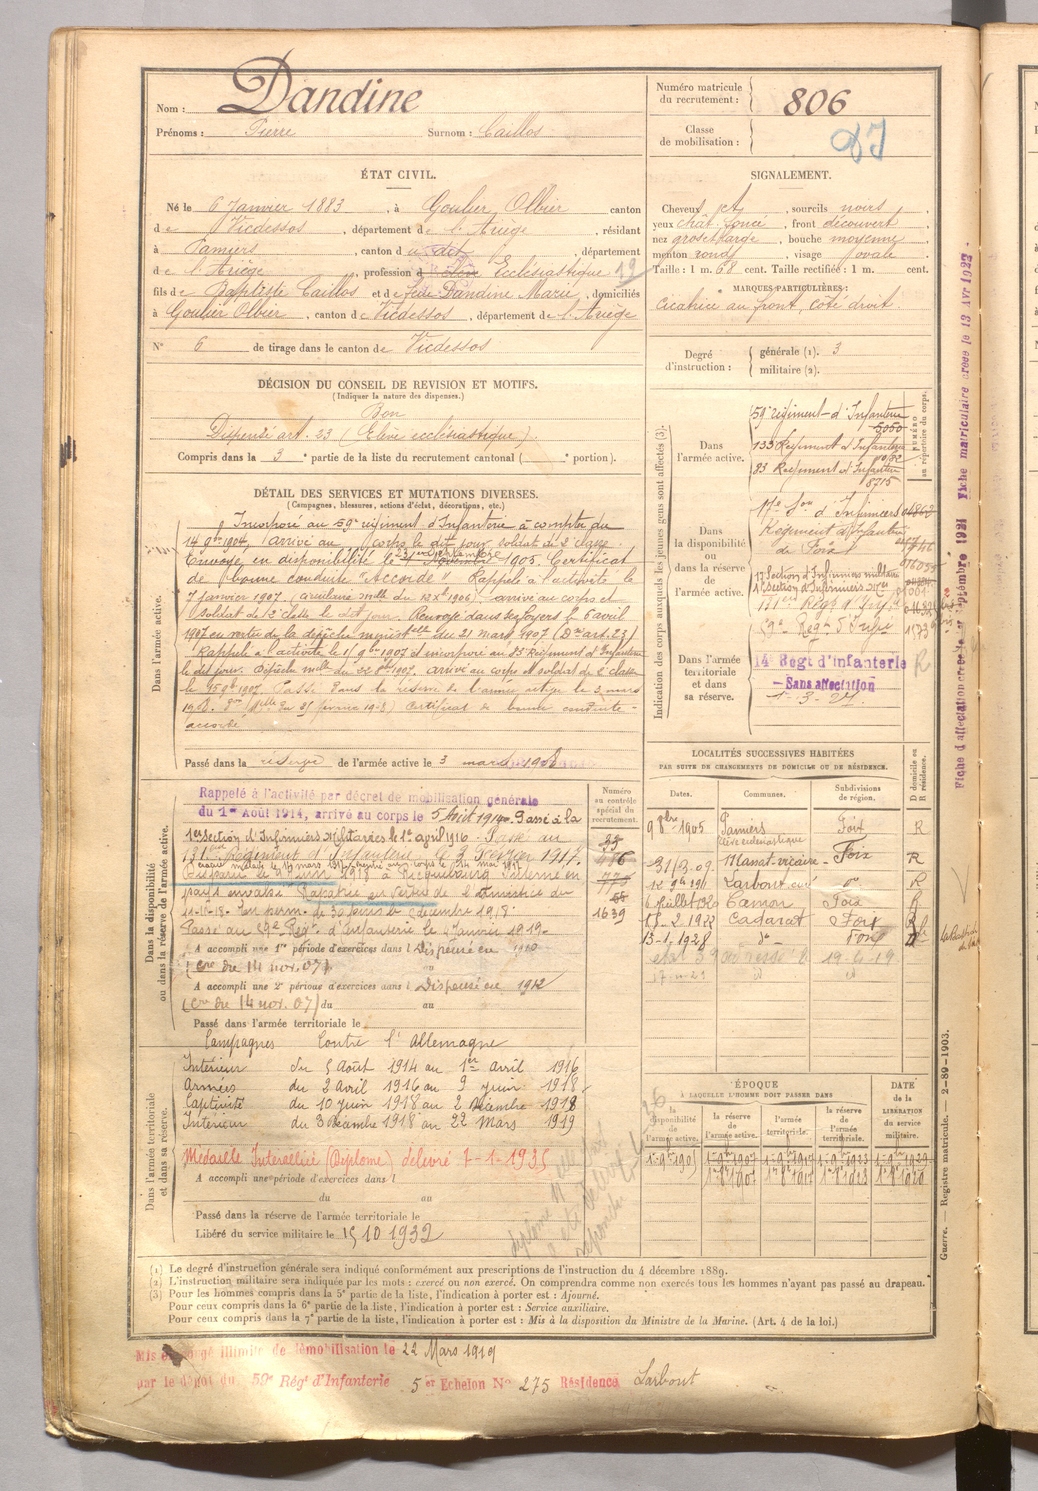 Nom : Dandine
Prénoms : Pierre Surnom : Caillos
Numéro matricule du recrutement : 806
Classe de mobilisation :
ÉTAT CIVIL.
Né le 6 Janvier 1883, à Goulier Olbier canton
de Vicdessos, département de l'Ariège, résidant
à Pamiers, canton d u dit, département
de l'Ariège, profession d Ecclésiastique
fils de Baptiste Caillos et de feue Dandine Marie, domiciliés
à Goulier Olbier, canton de Vicdessos, département de l'Ariège
N° 6 de tirage dans le canton de Vicdessos
SIGNALEMENT.
Cheveux jet, sourcils noirs,
yeux chât. foncé, front découvert,
nez gros et large, bouche moyenne,
menton rond, visage ovale.
Taille : 1 m. 68 cent. Taille rectifiée : 1 m. cent.
MARQUES PARTICULIÈRES :
Cicatrice au front, côté droit
Degré d'instruction : générale (1). 3
militaire (2).
DÉCISION DU CONSEIL DE REVISION ET MOTIFS.
(Indiquer la nature des dispenses.)
Bon
Dispensé art. 23 (Elève ecclésiastique).
Compris dans la 3e partie de la liste du recrutement cantonal ( e portion).
DÉTAIL DES SERVICES ET MUTATIONS DIVERSES.
(Campagnes, blessures, actions d'éclat, décorations, etc.)
Dans l'armée active.
Incorporé au 59e régiment d'Infanterie à compter du
14 9bre 1904, arrivé au corps le dit jour soldat de 2e classe.
Envoyé en disponibilité le 23 septembre 1905. Certificat
de bonne conduite "Accordé". Rappelé à l'activité le
7 janvier 1907. (circulaire melle du 1906). arrivé au corps et
soldat de 2e classe le dit jour. Renvoyé dans ses foyers le 6 avril
1907 en vertu de la dépêche ministelle du 21 mars 1907 (Dsé art. 23)
Rappelé à l'activité le 1907 et incorporé au Régiment d'Infanterie
le dit jour. Dépêche melle du 22 1907. arrivé au corps et soldat de 2e classe
le 1907. Passé dans la réserve de l'armée active le 3 mars
1908. Certificat de bonne conduite
accordé.
Passé dans la réserve de l'armée active le 3 mars 1908
Indication des corps auxquels les jeunes gens sont affectés (3).
NUMÉRO au répertoire du corps.
Dans l'armée active.
59e régiment d'Infanterie 5050
133 Régiment d'Infanterie
23 Régiment d'Infanterie 8715
Dans la disponibilité ou dans la réserve de l'armée active.
17e Son d'Infirmiers
Régiment d'Infanterie
de Foix
17 Section d'Infirmiers militaires
1e Section d'Infirmiers Mres
131e Régt d'Infie
59e Regt d'Infie
Dans l'armée territoriale et dans sa réserve.
14e Régt d'Infanterie
- Sans affectation
1-3-27.
Fiche d'affectation créée le septembre 1921 Fiche matriculaire créée le 13 Avr 1922
Dans la disponibilité ou dans la réserve de l'armée active.
Rappelé à l'activité par décret de mobilisation générale
du 1er Août 1914, arrivé au corps le 5 Août 1914. Passé à la
1ere Section d'Infirmiers Militaires le 1er avril 1916. Passé au
131eme Régiment d'Infanterie le 1917.
Disparu le 9 juin 1918 à Ricquebourg Interné en
pays envahi. Rapatrié au titre de l'Armistice du
11-11-18. En perm. de 30 jours le décembre 1918.
Passé au 59e Régt. d'Infanterie le Janvier 1919.
A accompli une 1re période d'exercices dans l Dispensé en 1910
(Cre du 14 nov. 07) au
A accompli une 2e période d'exercices dans l Dispensé en 1912
(Cre du 14 nov. 07) du au
Passé dans l'armée territoriale le
Numéro au contrôle spécial du recrutement.
1639
LOCALITÉS SUCCESSIVES HABITÉES
PAR SUITE DE CHANGEMENTS DE DOMICILE OU DE RÉSIDENCE.
Dates. Communes. Subdivisions de région. D domicile ou R résidence.
9 8bre 1905 Pamiers Foix R
élève ecclésiastique
31/3 09. Massat-vicaire Foix R
Larbont curé do R
6 Juillet 1920 Camon Foix R
18-2-1922 Cadarcet Foix
13-1-1928 do Foix
Dans l'armée territoriale et dans sa réserve.
Campagnes Contre l'Allemagne
Intérieur du 5 Août 1914 au 1er avril 1916
Armées du 2 avril 1916 au 9 juin 1918
Captivité du 10 juin 1918 au 2 décembre 1918
Intérieur du 3 décembre 1918 au 22 Mars 1919
Médaille Interalliée (Diplôme) délivré 7-1-1935
A accompli une période d'exercices dans l
du au
Passé dans la réserve de l'armée territoriale le
Libéré du service militaire le 15 10 1932
ÉPOQUE
À LAQUELLE L'HOMME DOIT PASSER DANS
la disponibilité de l'armée active. la réserve de l'armée active. l'armée territoriale. la réserve de l'armée territoriale.
DATE de la LIBÉRATION du service militaire.
Guerre. — Registre matricule. — 2-89-1903.
(1) Le degré d'instruction générale sera indiqué conformément aux prescriptions de l'instruction du 4 décembre 1889.
(2) L'instruction militaire sera indiquée par les mots : exercé ou non exercé. On comprendra comme non exercés tous les hommes n'ayant pas passé au drapeau.
(3) Pour les hommes compris dans la 5e partie de la liste, l'indication à porter est : Ajourné.
Pour ceux compris dans la 6e partie de la liste, l'indication à porter est : Service auxiliaire.
Pour ceux compris dans la 7e partie de la liste, l'indication à porter est : Mis à la disposition du Ministre de la Marine. (Art. 4 de la loi.)
Mis en congé illimité de démobilisation le 22 Mars 1919
par le dépôt du 59e Régt d'Infanterie 5 er Echelon No 275 Résidence Larbont